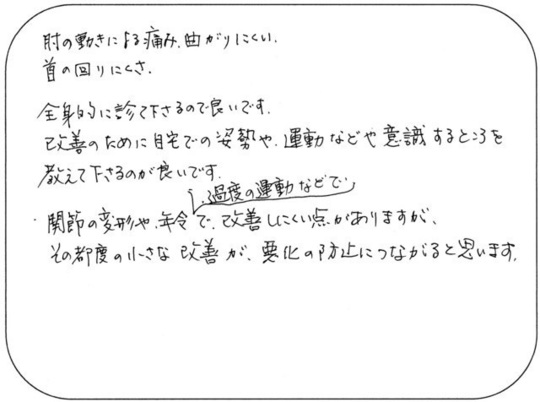 肘の動きによる痛み、曲がりにくい.
首の回りにくさ.
全身的に診て下さるので良いです.
改善のために自宅での姿勢や、運動などや意識するところを
教えて下さるのが良いです.
、過度の運動などで、
・関節の変形や、年令で、改善しにくい点がありますが、
その都度の小さな改善が、悪化の防止につながると思います.